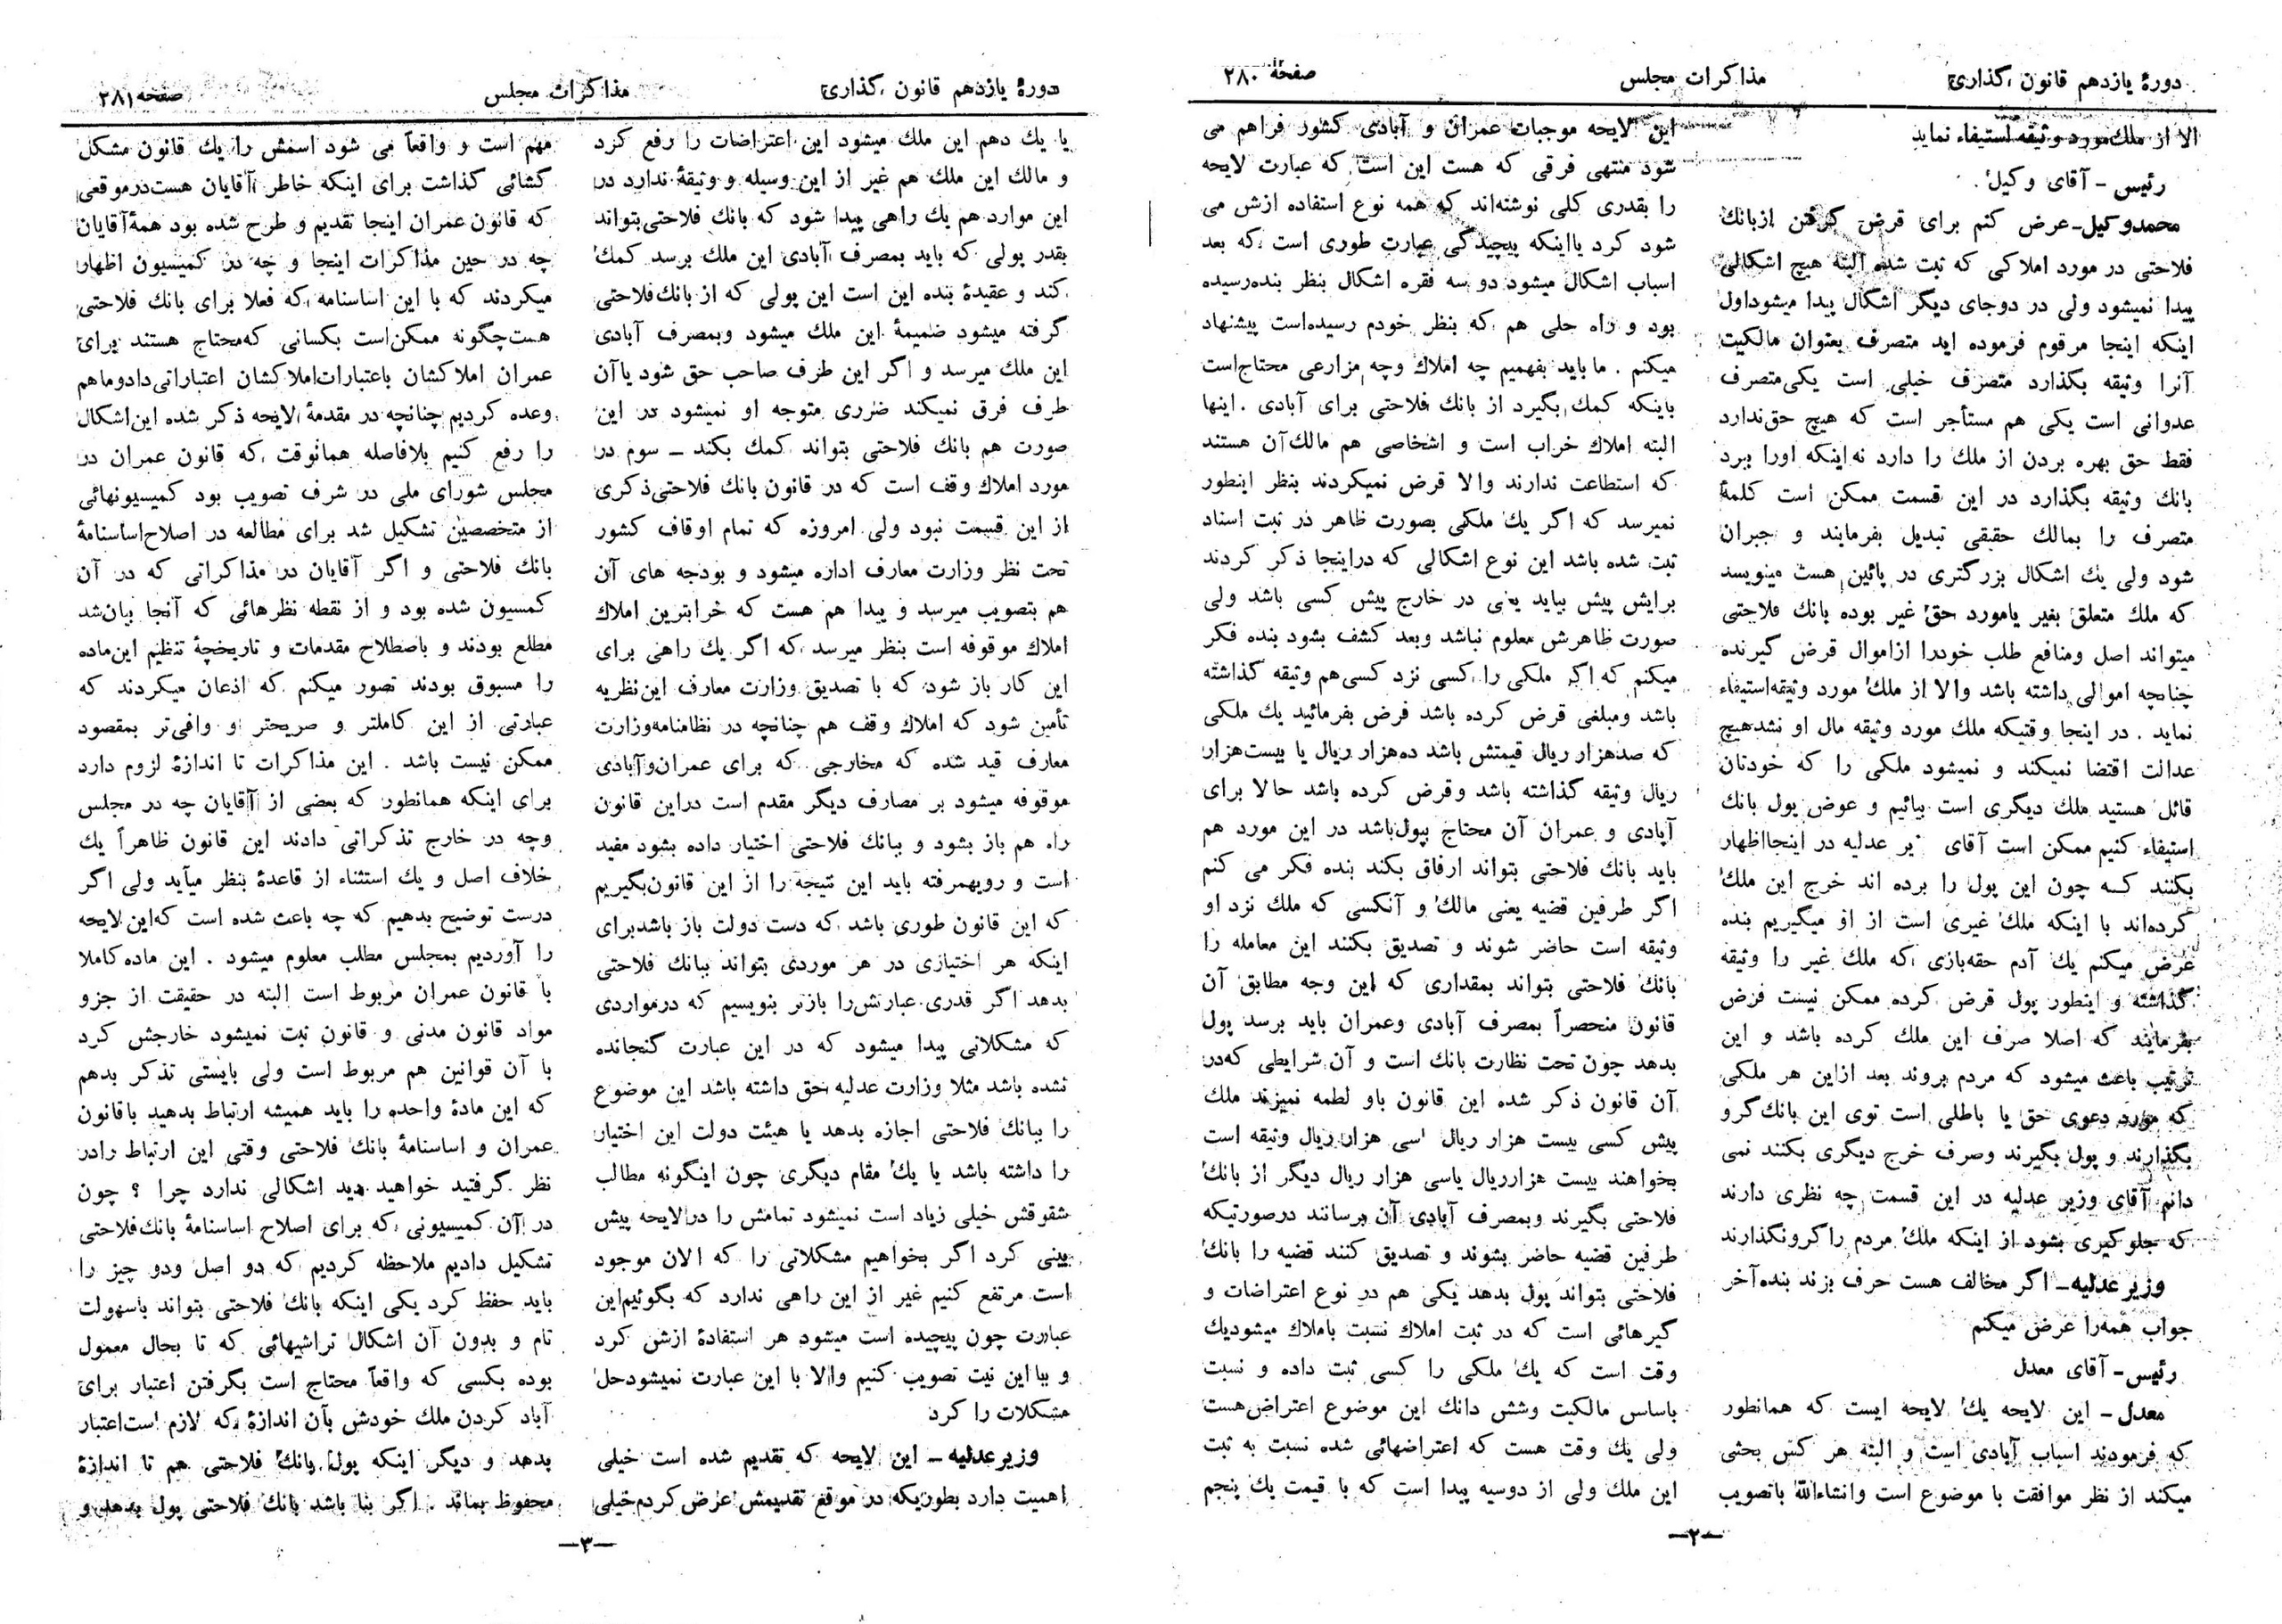 دورهٔ یازدهم قانون گذاری
مذاکرات مجلس
صفحهٔ ۲۸۰
الا از ملك مورد وثیقه استیفاء نماید
رئیس - آقای وکیل .
محمدوکیل - عرض کنم برای قرض گرفتن ازبانك
فلاحتی در مورد املاکی که ثبت شده البته هیچ اشکالی
پیدا نمیشود ولی در دوجای دیگر اشکال پیدا میشوداول
اینکه اینجا مرقوم فرموده اید متصرف بعنوان مالکیت
آنرا وثیقه بگذارد متصرف خیلی است یکی متصرف
عدوانی است یکی هم مستأجر است که هیچ حق ندارد
فقط حق بهره بردن از ملك را دارد نه اینکه اورا ببرد
بانك وثیقه بگذارد در این قسمت ممکن است کلمهٔ
متصرف را بمالك حقیقی تبدیل بفرمایند و جبران
شود ولی یك اشکال بزرگتری در پائین هست مینویسد
که ملك متعلق بغیر یامورد حق غیر بوده بانك فلاحتی
میتواند اصل ومنافع طلب خودرا ازاموال قرض گیرنده
چنانچه اموالی داشته باشد والا از ملك مورد وثیقه استیفاء
نماید . در اینجا وقتیکه ملك مورد وثیقه مال او نشد هیچ
عدالت اقتضا نمیکند و نمیشود ملکی را که خودتان
قائل هستید ملك دیگری است بیائیم و عوض پول بانك
استیفاء کنیم ممکن است آقای یر عدلیه در اینجا اظهار
بکنند که چون این پول را برده اند خرج این ملك
کرده‌اند با اینکه ملك غیری است از او میگیریم بنده
عرض میکنم یك آدم حقه‌بازی که ملك غیر را وثیقه
گذاشته و اینطور پول قرض کرده ممکن نیست فرض
بفرمایند که اصلا صرف این ملك کرده باشد و این
ترتیب باعث میشود که مردم بروند بعد ازاین هر ملکی
که مورد دعوی حق یا باطلی است توی این بانك گرو
بگذارند و پول بگیرند وصرف خرج دیگری بکنند نمی
دانم آقای وزیر عدلیه در این قسمت چه نظری دارند
که جلوگیری بشود از اینکه ملك مردم را گرونگذارند
وزیر عدلیه - اگر مخالف هست حرف بزند بنده آخر
جواب همه‌را عرض میکنم
رئیس - آقای معدل
معدل - این لایحه یك لایحه ایست که همانطور
که فرمودند اسباب آبادی است و البته هر کس بحثی
میکند از نظر موافقت با موضوع است وانشاءالله باتصویب
این لایحه موجبات عمران و آبادی کشور فراهم می
شود منتهی فرقی که هست این است که عبارت لایحه
را بقدری کلی نوشته‌اند که همه نوع استفاده ازش می
شود کرد یااینکه پیچیدگی عبارت طوری است که بعد
اسباب اشکال میشود دو سه فقره اشکال بنظر بنده رسیده
بود و راه حلی هم که بنظر خودم رسیده‌است پیشنهاد
میکنم . ما باید بفهمیم چه املاك وچه مزارعی محتاج است
باینکه کمك بگیرد از بانك فلاحتی برای آبادی . اینها
البته املاك خراب است و اشخاصی هم مالك آن هستند
که استطاعت ندارند والا قرض نمیکردند بنظر اینطور
نمیرسد که اگر یك ملکی بصورت ظاهر در ثبت اسناد
ثبت شده باشد این نوع اشکالی که دراینجا ذکر کردند
برایش پیش بیاید یعنی در خارج پیش کسی باشد ولی
صورت ظاهرش معلوم نباشد وبعد کشف بشود بنده فکر
میکنم که اگر ملکی را کسی نزد کسی هم وثیقه گذاشته
باشد ومبلغی قرض کرده باشد فرض بفرمائید یك ملکی
که صدهزار ریال قیمتش باشد ده‌هزار ریال یا بیست هزار
ریال وثیقه گذاشته باشد وقرض کرده باشد حالا برای
آبادی و عمران آن محتاج بپول باشد در این مورد هم
باید بانك فلاحتی بتواند ارفاق بکند بنده فکر می کنم
اگر طرفین قضیه یعنی مالك و آنکسی که ملك نزد او
وثیقه است حاضر شوند و تصدیق بکنند این معامله را
بانك فلاحتی بتواند بمقداری که این وجه مطابق آن
قانون منحصراً بمصرف آبادی وعمران باید برسد پول
بدهد چون تحت نظارت بانك است و آن شرایطی که در
آن قانون ذکر شده این قانون باو لطمه نمیزند ملك
پیش کسی بیست هزار ریال سی هزار ریال وثیقه است
بخواهند بیست هزارریال یاسی هزار ریال دیگر از بانك
فلاحتی بگیرند وبمصرف آبادی آن برسانند درصورتیکه
طرفین قضیه حاضر بشوند و تصدیق کنند قضیه را بانك
فلاحتی بتواند پول بدهد یکی هم در نوع اعتراضات و
گیرهائی است که در ثبت املاك نسبت باملاك میشود یك
وقت است که یك ملکی را کسی ثبت داده و نسبت
باساس مالکیت وشش دانك این موضوع اعتراض هست
ولی یك وقت هست که اعتراضهائی شده نسبت به ثبت
این ملك ولی از دوسیه پیدا است که با قیمت یك پنجم
—۲—
دورهٔ یازدهم قانون گذاری
مذاکرات مجلس
صفحه ۲۸۱
یا یك دهم این ملك میشود این اعتراضات را رفع کرد
و مالك این ملك هم غیر از این وسیله و وثیقهٔ ندارد در
این موارد هم یك راهی پیدا شود که بانك فلاحتی بتواند
بقدر پولی که باید بمصرف آبادی این ملك برسد کمك
کند و عقیدهٔ بنده این است این پولی که از بانك فلاحتی
گرفته میشود ضمیمهٔ این ملك میشود وبمصرف آبادی
این ملك میرسد و اگر این طرف صاحب حق شود یا آن
طرف فرق نمیکند ضرری متوجه او نمیشود در این
صورت هم بانك فلاحتی بتواند کمك بکند - سوم در
مورد املاك وقف است که در قانون بانك فلاحتی ذکری
از این قسمت نبود ولی امروزه که تمام اوقاف کشور
تحت نظر وزارت معارف اداره میشود و بودجه های آن
هم بتصویب میرسد و پیدا هم هست که خرابترین املاك
املاك موقوفه است بنظر میرسد که اگر یك راهی برای
این کار باز شود که با تصدیق وزارت معارف این نظریه
تأمین شود که املاك وقف هم چنانچه در نظامنامه وزارت
معارف قید شده که مخارجی که برای عمران و آبادی
موقوفه میشود بر مصارف دیگر مقدم است دراین قانون
راه هم باز بشود و ببانك فلاحتی اختیار داده بشود مفید
است و رویهمرفته باید این نتیجه را از این قانون بگیریم
که این قانون طوری باشد که دست دولت باز باشد برای
اینکه هر اختیاری در هر موردی بتواند ببانك فلاحتی
بدهد اگر قدری عبارتش را بازتر بنویسیم که درمواردی
که مشکلاتی پیدا میشود که در این عبارت گنجانده
نشده باشد مثلا وزارت عدلیه حق داشته باشد این موضوع
را ببانك فلاحتی اجازه بدهد یا هیئت دولت این اختیار
را داشته باشد یا یك مقام دیگری چون اینگونه مطالب
شقوقش خیلی زیاد است نمیشود تمامش را درلایحه پیش
بینی کرد اگر بخواهیم مشکلاتی را که الان موجود
است مرتفع کنیم غیر از این راهی ندارد که بگوئیم این
عبارت چون پیچیده است میشود هر استفادهٔ ازش کرد
و بااین نیت تصویب کنیم والا با این عبارت نمیشود حل
مشکلات را کرد
وزیر عدلیه - این لایحه که تقدیم شده است خیلی
اهمیت دارد بطوریکه در موقع تقدیمش عرض کردم خیلی
مهم است و واقعاً می شود اسمش را یك قانون مشکل
گشائی گذاشت برای اینکه خاطر آقایان هست درموقعی
که قانون عمران اینجا تقدیم و طرح شده بود همهٔ آقایان
چه در حین مذاکرات اینجا و چه در کمیسیون اظهار
میکردند که با این اساسنامه که فعلا برای بانك فلاحتی
هست چگونه ممکن است بکسانی که محتاج هستند برای
عمران املاکشان باعتبارات املاکشان اعتباراتی داد و ماهم
وعده کردیم چنانچه در مقدمهٔ لایحه ذکر شده این اشکال
را رفع کنیم بلافاصله همانوقت که قانون عمران در
مجلس شورای ملی در شرف تصویب بود کمیسیونهائی
از متخصصین تشکیل شد برای مطالعه در اصلاح اساسنامهٔ
بانك فلاحتی و اگر آقایان در مذاکراتی که در آن
کمسیون شده بود و از نقطه نظرهائی که آنجا بیان شد
مطلع بودند و باصطلاح مقدمات و تاریخچهٔ تنظیم این ماده
را مسبوق بودند تصور میکنم که اذعان میکردند که
عبارتی از این کاملتر و صریحتر و وافی‌تر بمقصود
ممکن نیست باشد . این مذاکرات تا اندازهٔ لزوم دارد
برای اینکه همانطور که بعضی از آقایان چه در مجلس
وچه در خارج تذکراتی دادند این قانون ظاهراً یك
خلاف اصل و یك استثناء از قاعدهٔ بنظر میآید ولی اگر
درست توضیح بدهیم که چه باعث شده است که این لایحه
را آوردیم بمجلس مطلب معلوم میشود . این ماده کاملا
با قانون عمران مربوط است البته در حقیقت از جزو
مواد قانون مدنی و قانون ثبت نمیشود خارجش کرد
با آن قوانین هم مربوط است ولی بایستی تذکر بدهم
که این مادهٔ واحده را باید همیشه ارتباط بدهید باقانون
عمران و اساسنامهٔ بانك فلاحتی وقتی این ارتباط رادر
نظر گرفتید خواهید دید اشکالی ندارد چرا ؟ چون
در آن کمیسیونی که برای اصلاح اساسنامهٔ بانك فلاحتی
تشکیل دادیم ملاحظه کردیم که دو اصل ودو چیز را
باید حفظ کرد یکی اینکه بانك فلاحتی بتواند باسهولت
تام و بدون آن اشکال تراشیهائی که تا بحال معمول
بوده بکسی که واقعاً محتاج است بگرفتن اعتبار برای
آباد کردن ملك خودش بآن اندازهٔ که لازم است اعتبار
بدهد و دیگر اینکه پول بانك فلاحتی هم تا اندازهٔ
محفوظ بماند . اگر بنا باشد بانك فلاحتی پول بدهد و
—۳—